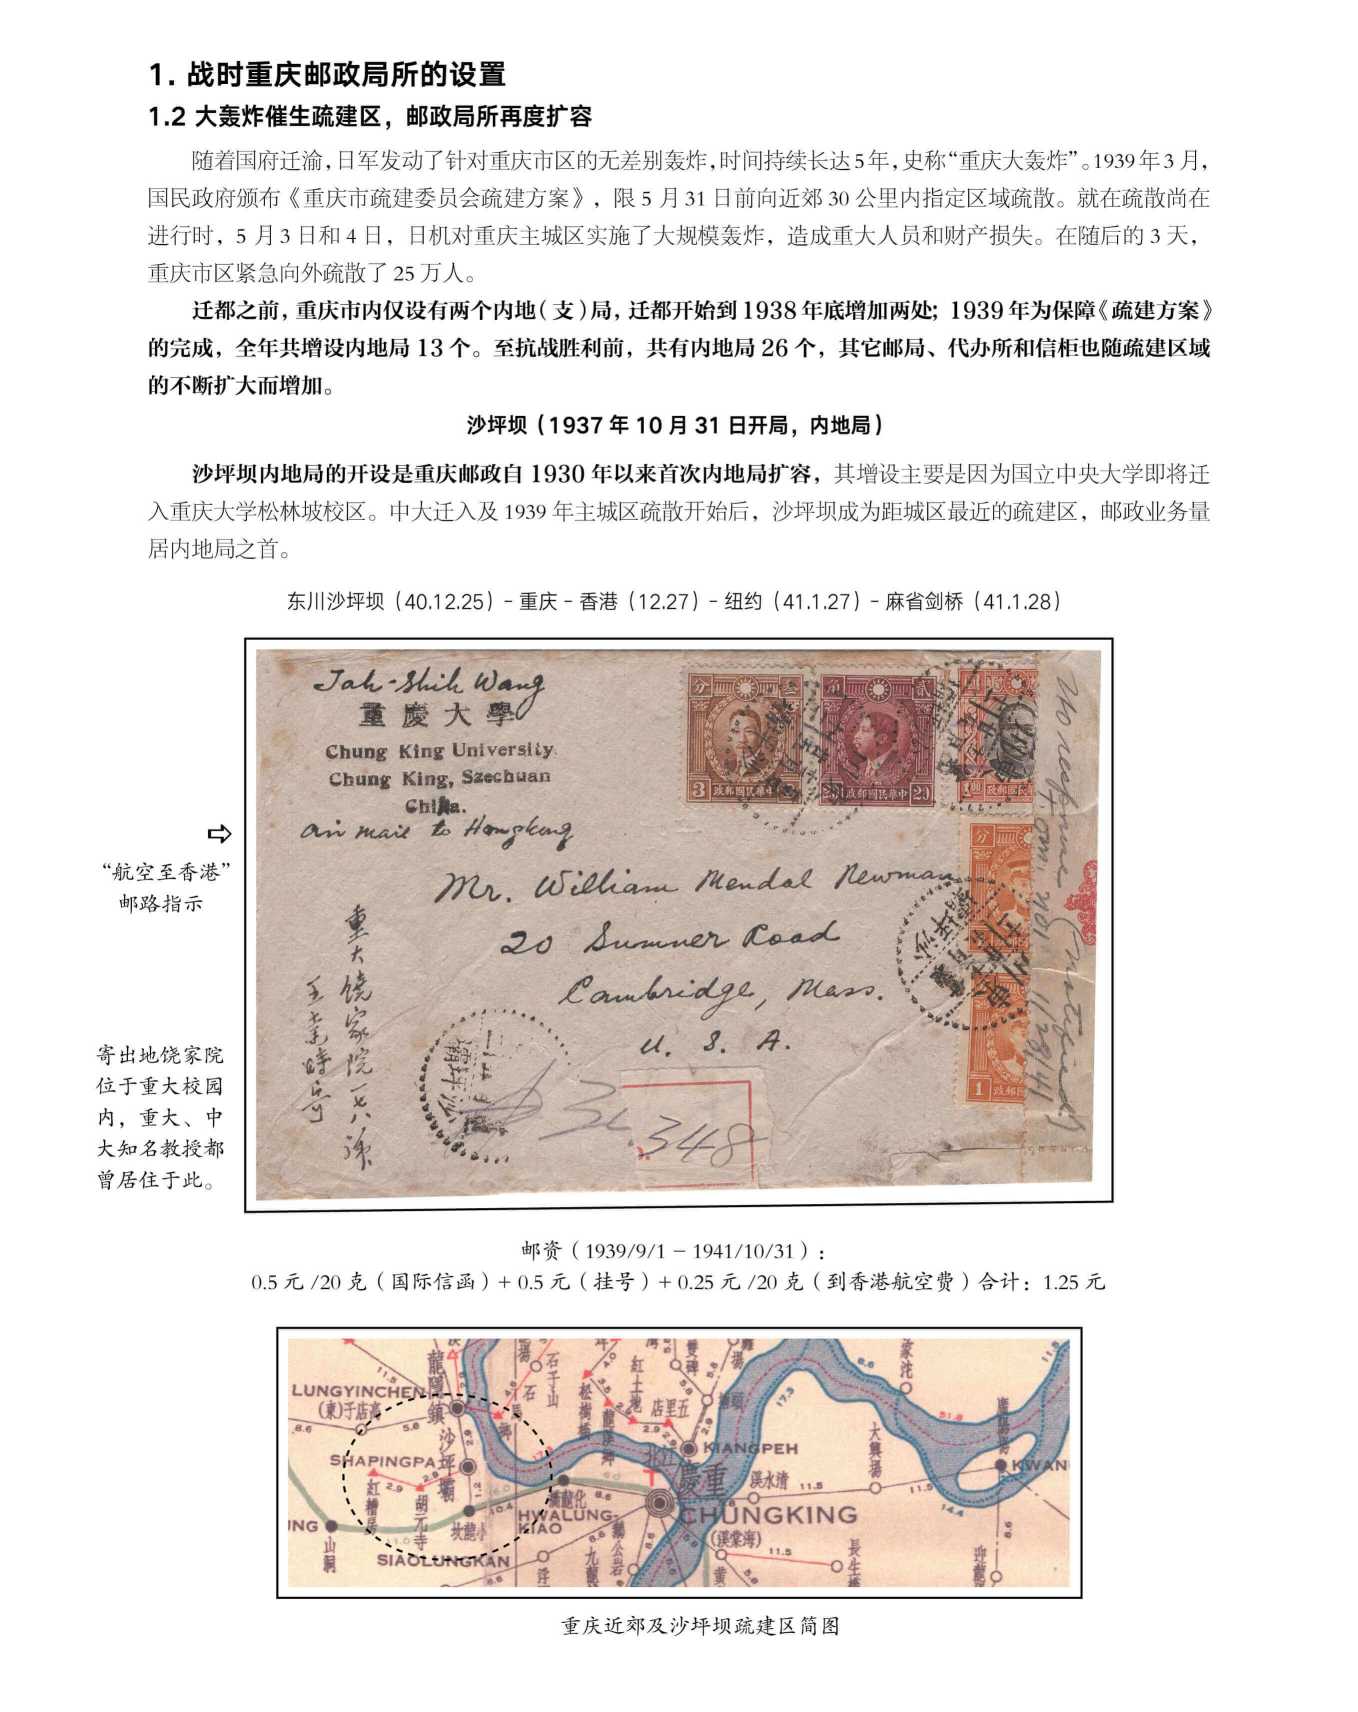 1. 战时重庆邮政局所的设置
1.2 大轰炸催生疏建区，邮政局所再度扩容
随着国府迁渝，日军发动了针对重庆市区的无差别轰炸，时间持续长达5年，史称“重庆大轰炸”。1939年3月，
国民政府颁布《重庆市疏建委员会疏建方案》，限 5 月 31 日前向近郊 30 公里内指定区域疏散。就在疏散尚在
进行时，5 月 3 日和 4 日，日机对重庆主城区实施了大规模轰炸，造成重大人员和财产损失。在随后的 3 天，
重庆市区紧急向外疏散了 25 万人。
迁都之前，重庆市内仅设有两个内地（支）局，迁都开始到1938年底增加两处；1939年为保障《疏建方案》
的完成，全年共增设内地局 13 个。至抗战胜利前，共有内地局 26 个，其它邮局、代办所和信柜也随疏建区域
的不断扩大而增加。
沙坪坝（1937 年 10 月 31 日开局，内地局）
沙坪坝内地局的开设是重庆邮政自 1930 年以来首次内地局扩容，其增设主要是因为国立中央大学即将迁
入重庆大学松林坡校区。中大迁入及 1939 年主城区疏散开始后，沙坪坝成为距城区最近的疏建区，邮政业务量
居内地局之首。
东川沙坪坝（40.12.25）- 重庆 - 香港（12.27）- 纽约（41.1.27）- 麻省剑桥（41.1.28）
Jah-Shih Wang
重慶大學
Chung King University.
Chung King, Szechuan
China.
Air mail to Hongkong
Mr. William Mendal Newman
20 Sumner Road
Cambridge, Mass.
U. S. A.
重大饒家院一七八號
348
3
政郵國民華中
20
1
No response
1/28/41
“航空至香港”
邮路指示
寄出地饶家院
位于重大校园
内，重大、中
大知名教授都
曾居住于此。
邮资（1939/9/1 - 1941/10/31）：
0.5 元 /20 克（国际信函）+ 0.5 元（挂号）+ 0.25 元 /20 克（到香港航空费）合计：1.25 元
LUNGYINCHEN
龍隱鎮
(東)子店高
SHAPINGPA
沙坪壩
紅糟房
胡元寺
坎龍小
SIAOLUNGKAN
山洞
石子山
松樹橋
龍溪鄉
紅土地
店里五
KIANGPEH
江北
重慶
CHUNGKING
橋龍化
HWALUNG-
KIAO
溪水清
(溪棠海)
大興場
KWAN
11.5
17.3
51.8
14.4
重庆近郊及沙坪坝疏建区简图